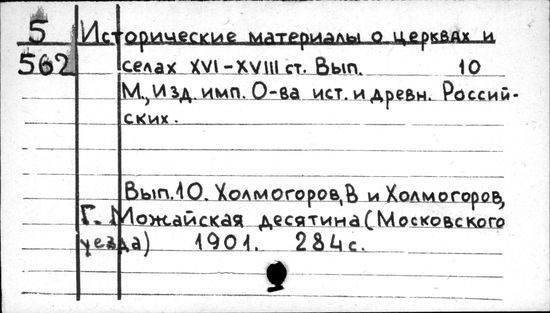 5 Исторические материалы о церквах и
562 селах XVI-XVIII ст. Вып. 10
М., Изд. имп. О-ва ист. и древн. Россий-
ских.
Вып.10. Холмогоров, В и Холмогоров,
Г. Можайская десятина (Московского
уезда) 1901. 284с.